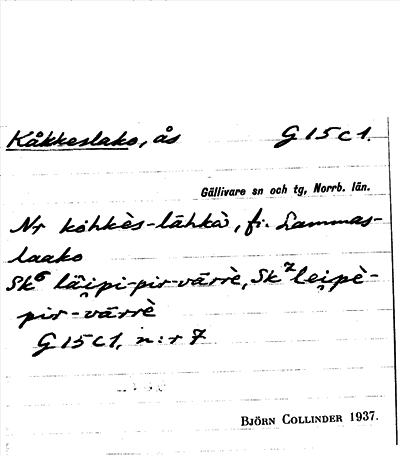 Kåkkeslako, ås G 15 C 1.
Gällivare sn och tg, Norrb. län.
Nr kòhkès-làhkà, fi. Lammas-
laako
Sk⁶ lài̭pi-pir-vārrè, Sk⁷ lei̭pè-
pir-vārrè
G 15 C 1, n:r 7
BJÖRN COLLINDER 1937.